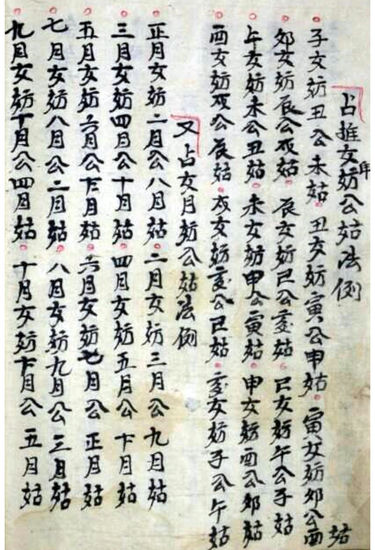 占推女年妨公姑法例
○子女妨丑公未姑○丑女妨寅公申姑○寅女妨夘公酉姑
○夘女妨辰公戌姑○辰女妨巳公亥姑○巳女妨午公子姑
○午女妨未公丑姑○未女妨申公寅姑○申女妨酉公夘姑
○酉女妨戌公辰姑○戌女妨亥公巳姑○亥女妨子公午姑
又占女月妨公姑法例
○正月女妨二月公八月姑○二月女妨三月公九月姑
○三月女妨四月公十月姑○四月女妨五月公十一月姑
○五月女妨六月公十二月姑○六月女妨七月公正月姑
○七月女妨八月公二月姑○八月女妨九月公三月姑
○九月女妨十月公四月姑○十月女妨十一月公五月姑